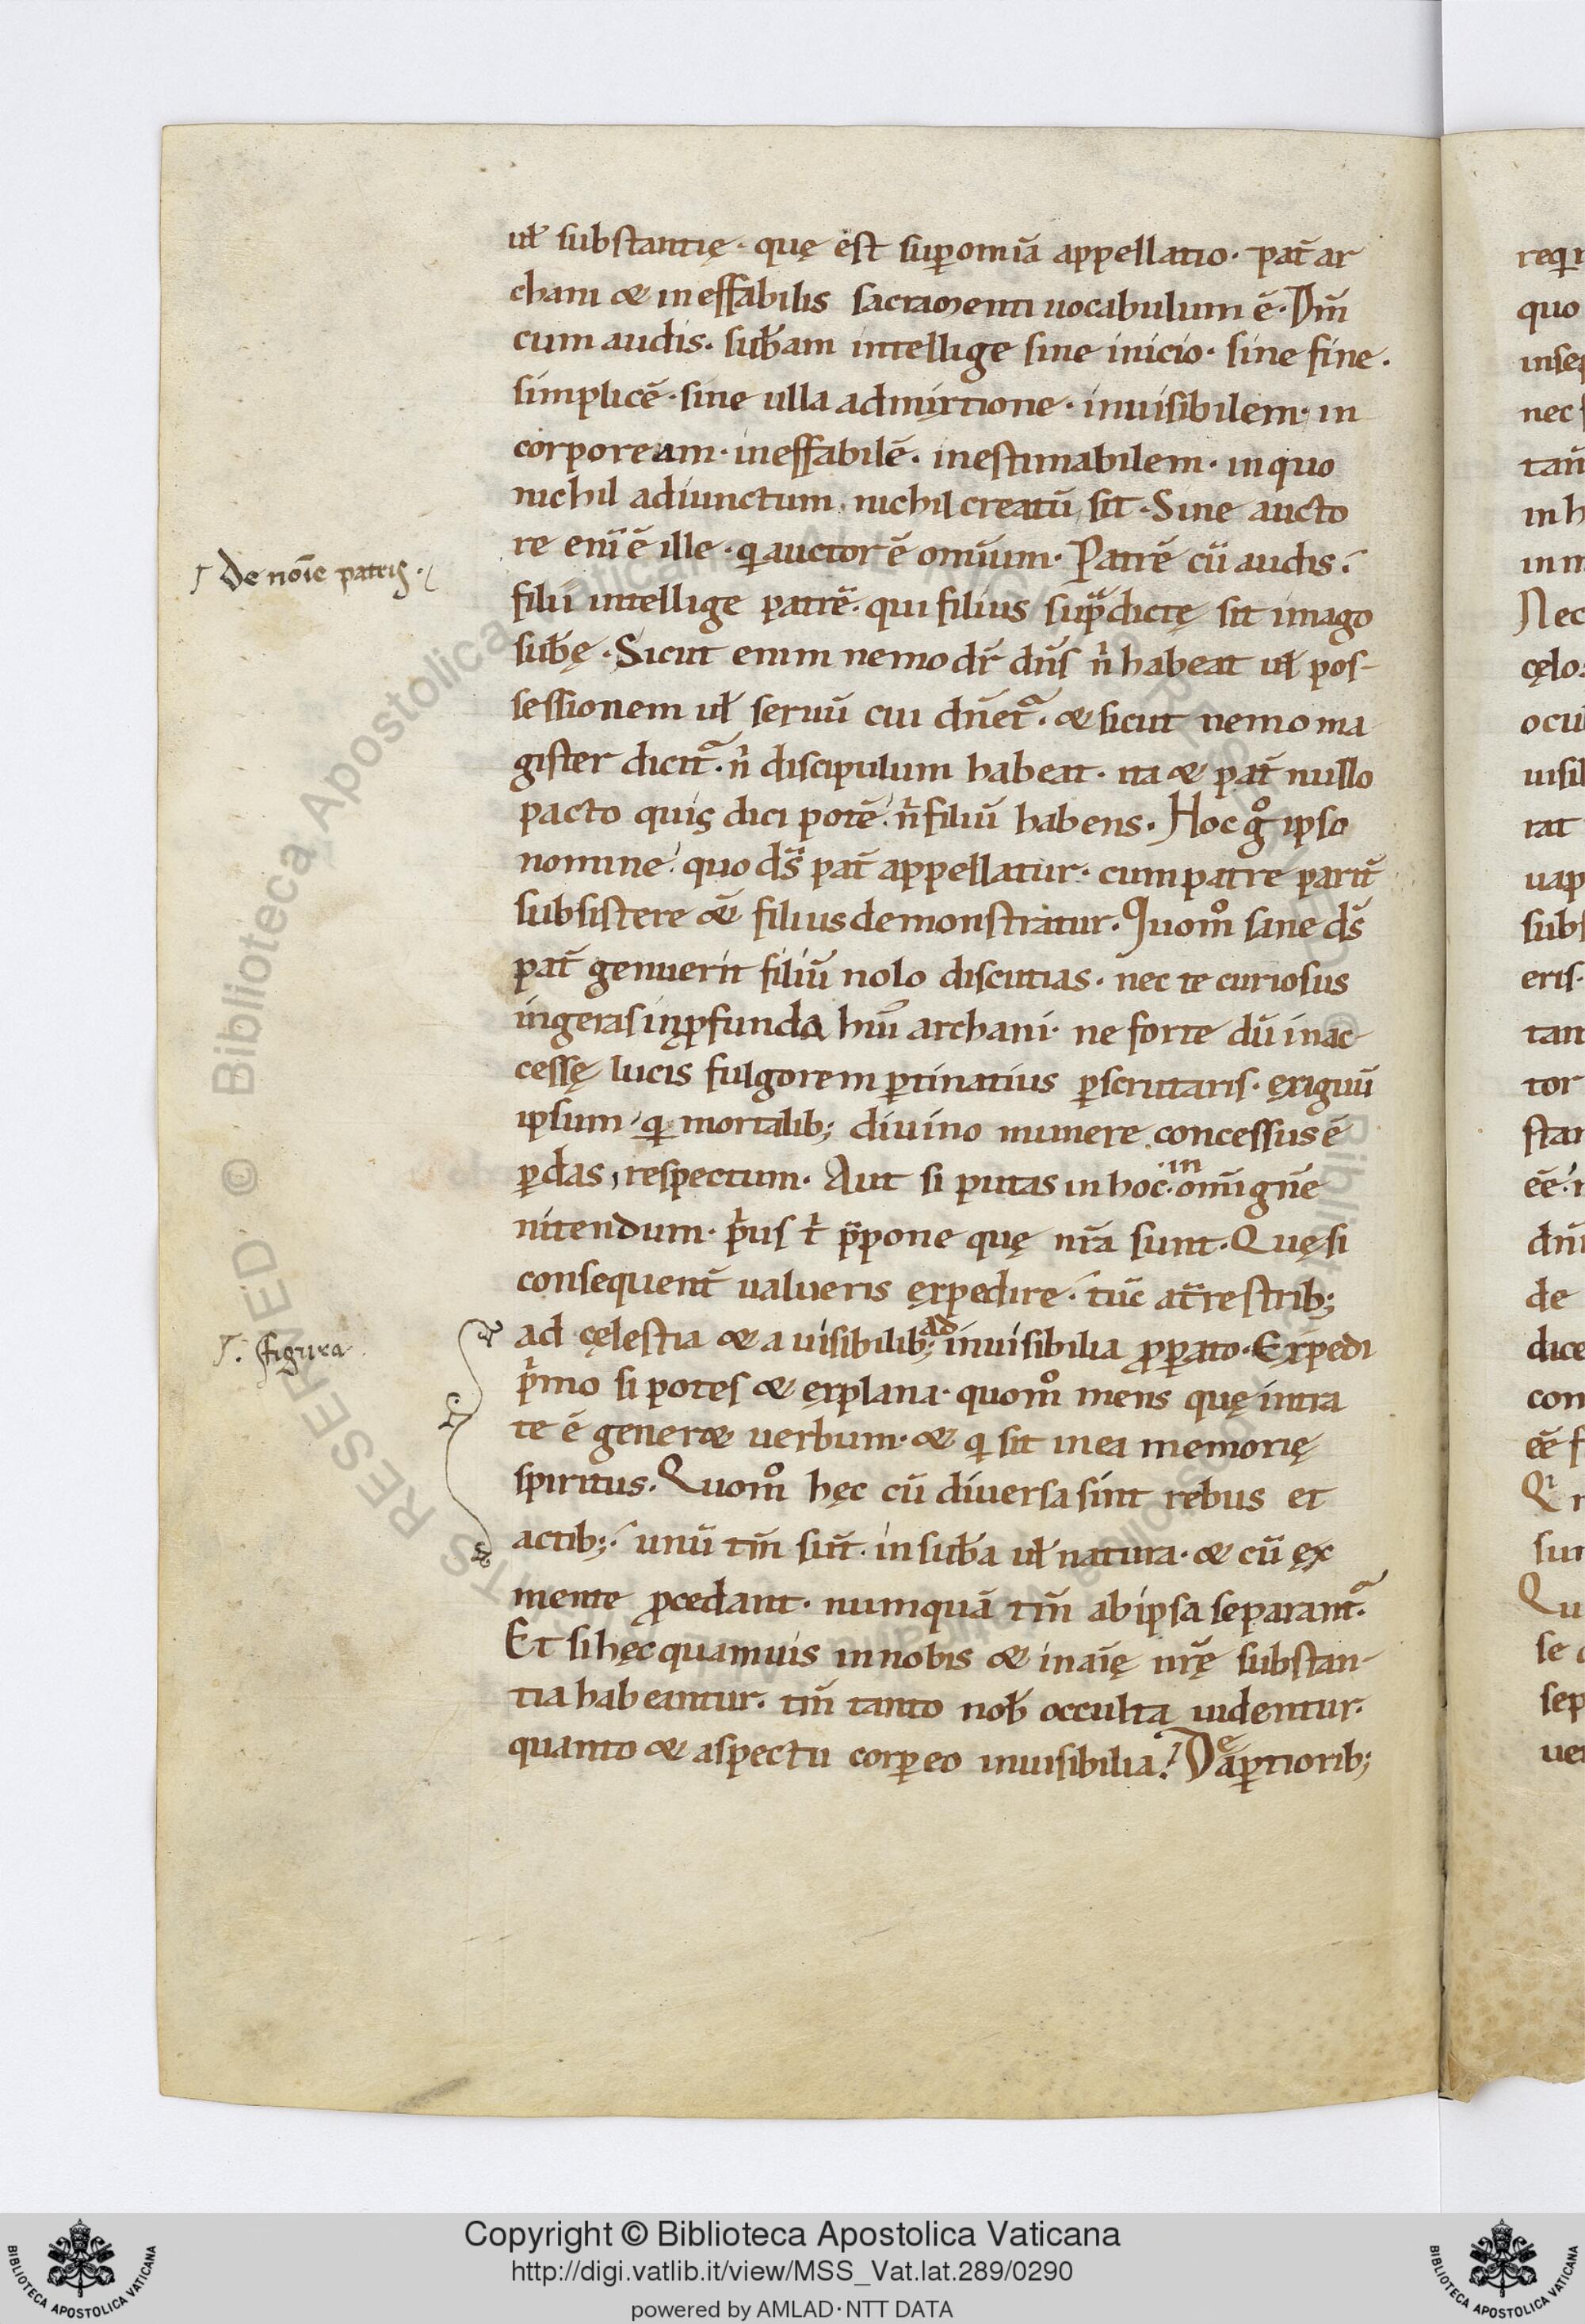 ul̃ substantię · quę est sup̱ omĩa appellatio · pat̃ ar
chani & ineffabilis sacramenti uocabulum ẽ · Dm̃
cum audis · sub̃am intellige sine inicio · sine fine ·
simplicẽ · sine ulla admixtione · inuisibilem · in
corpoream · ineffabilẽ · inestimabilem · in quo
nichil adiunctum · nichil creatũ sit · Sine aucto
re eni̅ ẽ ille · qͥ auctor ẽ omĩum · Patrẽ cũ audis ·
filii intellige patrẽ · qui filius sup̃dictę sit imago
sub̃ę · Sicut enim nemo dr̃ dñs nͥ habeat ul̃ pos-
sessionem ul̃ seruũ cui dñet᷑ · & sicut nemo ma
gister dicit᷑ · nͥ discipulum habeat · ita & pat̃ nullo
pacto quis dici potẽ · nͥ filiũ habens · Hoc gͦ ipso
nomine · quo ds̃ pat̃ appellatur · cum patre parit̃
subsistere &ẽ filius demonstratur · Quom̊ sane ds̃
pat̃ genuerit filiũ nolo discutias · nec te curiosus
ingeras in ꝓfunda huĩ archani · ne forte dũ inac-
cessę lucis fulgorem ꝑtinatius ꝑscrutaris · exiguũ
ipsum · qͥ mortalib; diuino munere concessus ẽ
ꝑdas, respectum · Aut si putas in hoc · in om̃i gñe
nitendum · pͥus tͥ ꝓpone quę nr̃a sunt · Quę si
consequent̃ ualueris expedire · tũc at̃restrib;
ad cęlestia & a uisibilib; ad inuisibilia ꝓꝑato · Expedi
pͥmo si potes & explana · quom̊ mens quę intra
te ẽ gener& uerbum · & qͥ sit in ea memorię
spiritus · Quom̊ hęc cũ diuersa sint rebus et
actib; · unũ tm̃ sut̃ · in sub̃a ul̃ natura · & cũ ex
mente ꝓcedant · numquã tm̃ ab ipsa separant᷑ ·
Et si hęc quamuis in nobis & in aĩę nr̃ę substan-
tia habeantur · tm̃ tanto nob̃ occulta uidentur ·
quanto & aspectu corꝑeo inuisibilia · De aꝑtiorib;
de noı̃e patris ·
figura
reqͥ
quo
inse
nec
tañ
in h
in m
Nec
cęlo
ocu
uisi
rat
uap
subs
eris ·
tan
tor
star
ẽe ·
dñi
de
dice
con
ẽe f
Qͥ
sur
Qu
se
sep
uer
© Biblioteca Apostolica Vaticana
Copyright © Biblioteca Apostolica Vaticana
http://digi.vatlib.it/view/MSS_Vat.lat.289/0290
powered by AMLAD · NTT DATA
BIBLIOTECA APOSTOLICA VATICANA
BIBLIOTECA APOSTOLICA VATICANA